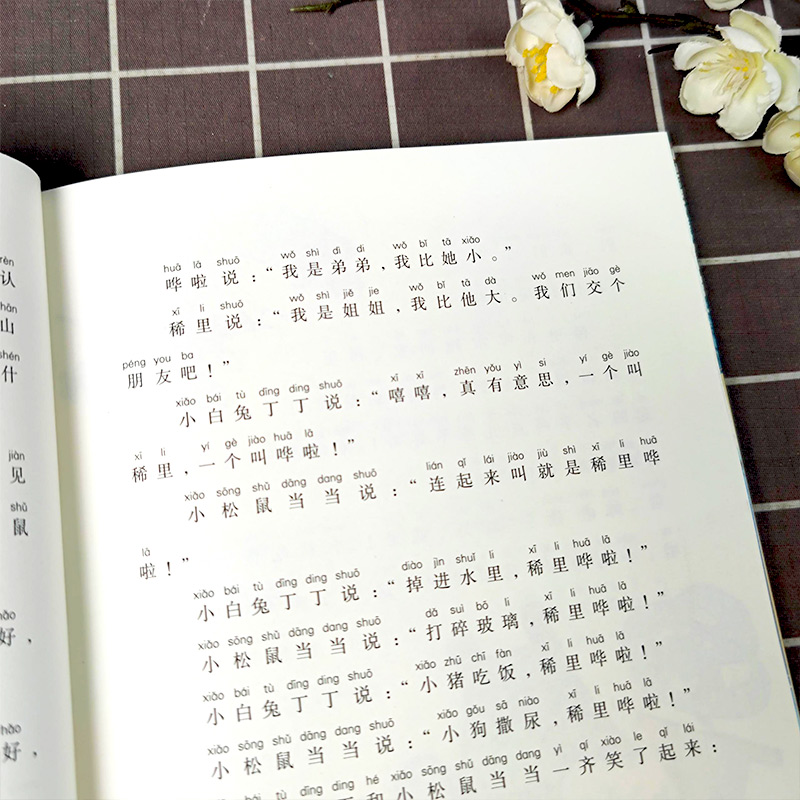 rèn
认
hǎn
山
shén
什
jiàn
见
shǔ
鼠
hǎo
好，
hǎo
好，
huā lā shuō wǒ shì dì di wǒ bǐ tā xiǎo
哗啦说：“我是弟弟，我比她小。”
xī li shuō wǒ shì jiě jie wǒ bǐ tā dà wǒ men jiāo gè
稀里说：“我是姐姐，我比他大。我们交个
péng you ba
朋友吧！”
xiǎo bái tù dīng ding shuō xī xī zhēn yǒu yì si yí gè jiào
小白兔丁丁说：“嘻嘻，真有意思，一个叫
xī li yí gè jiào huā lā
稀里，一个叫哗啦！”
xiǎo sōng shǔ dāng dang shuō lián qǐ lái jiào jiù shì xī li huā
小松鼠当当说：“连起来叫就是稀里哗
lā
啦！”
xiǎo bái tù dīng ding shuō diào jìn shuǐ li xī li huā lā
小白兔丁丁说：“掉进水里，稀里哗啦！”
xiǎo sōng shǔ dāng dang shuō dǎ suì bō li xī li huā lā
小松鼠当当说：“打碎玻璃，稀里哗啦！”
xiǎo bái tù dīng ding shuō xiǎo zhū chī fàn xī li huā lā
小白兔丁丁说：“小猪吃饭，稀里哗啦！”
xiǎo sōng shǔ dāng dang shuō xiǎo gǒu sā niào xī li huā lā
小松鼠当当说：“小狗撒尿，稀里哗啦！”
xiǎo bái tù dīng ding hé xiǎo sōng shǔ dāng dang yì qí xiào le qǐ lái
丁和小松鼠当当一齐笑了起来：